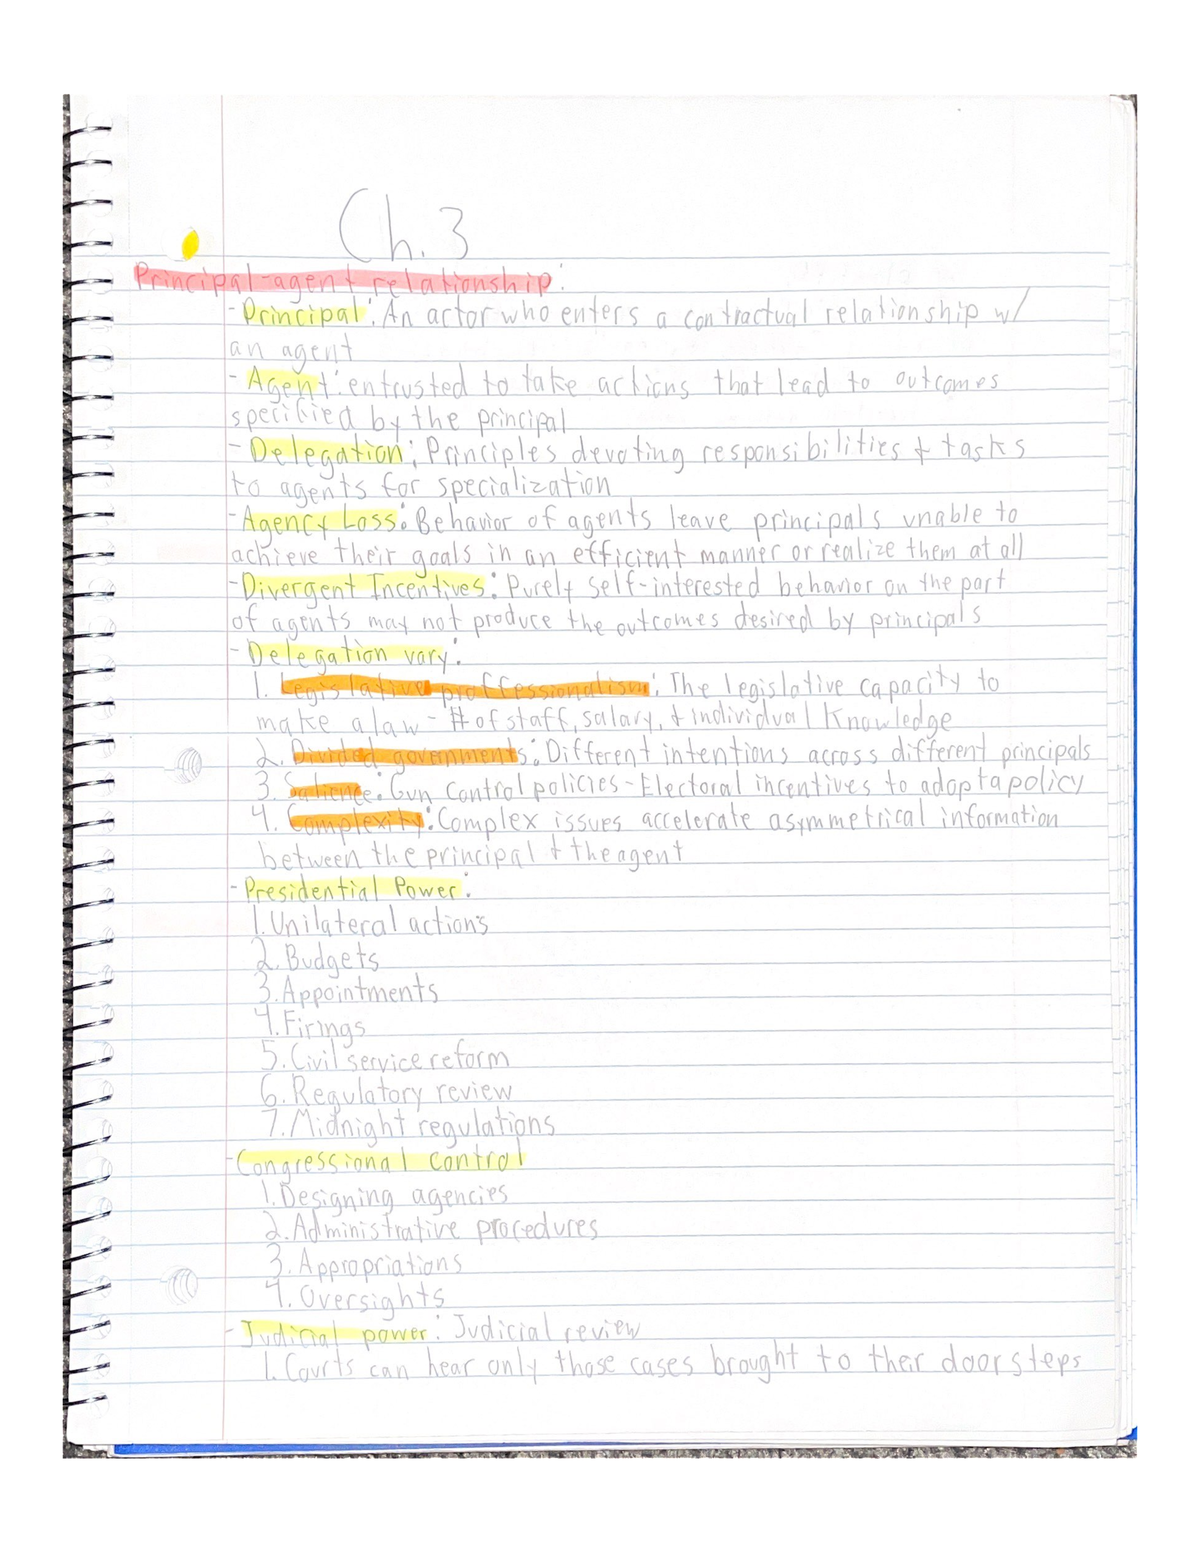 Ch. 3
Principal-agent relationship:
- Principal: An actor who enters a contractual relationship w/
an agent
- Agent: entrusted to take actions that lead to outcomes
specified by the principal
- Delegation: Principles devoting responsibilities & tasks
to agents for specialization
- Agency Loss: Behavior of agents leave principals unable to
achieve their goals in an efficient manner or realize them at all
- Divergent Incentives: Purely self-interested behavior on the part
of agents may not produce the outcomes desired by principals
- Delegation vary:
1. Legislative proffessionalism: The legislative capacity to
make a law - # of staff, salary, & individual knowledge
2. Divided governments: Different intentions across different principals
3. Salience: Gun control policies - Electoral incentives to adopt a policy
4. Complexity: Complex issues accelerate asymmetrical information
between the principal & the agent
- Presidential Power:
1. Unilateral actions
2. Budgets
3. Appointments
4. Firings
5. Civil service reform
6. Regulatory review
7. Midnight regulations
- Congressional control
1. Designing agencies
2. Administrative procedures
3. Appropriations
4. Oversights
- Judicial power: Judicial review
1. Courts can hear only those cases brought to their doorsteps